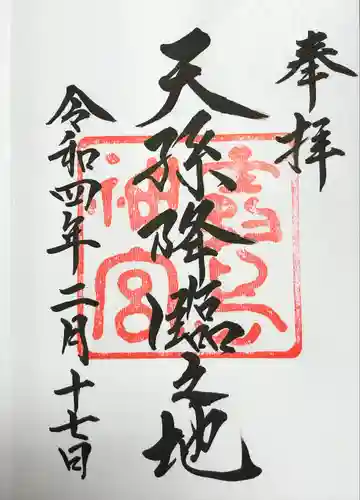 奉拝
天孫降臨之地
令和四年二月十七日
神宮